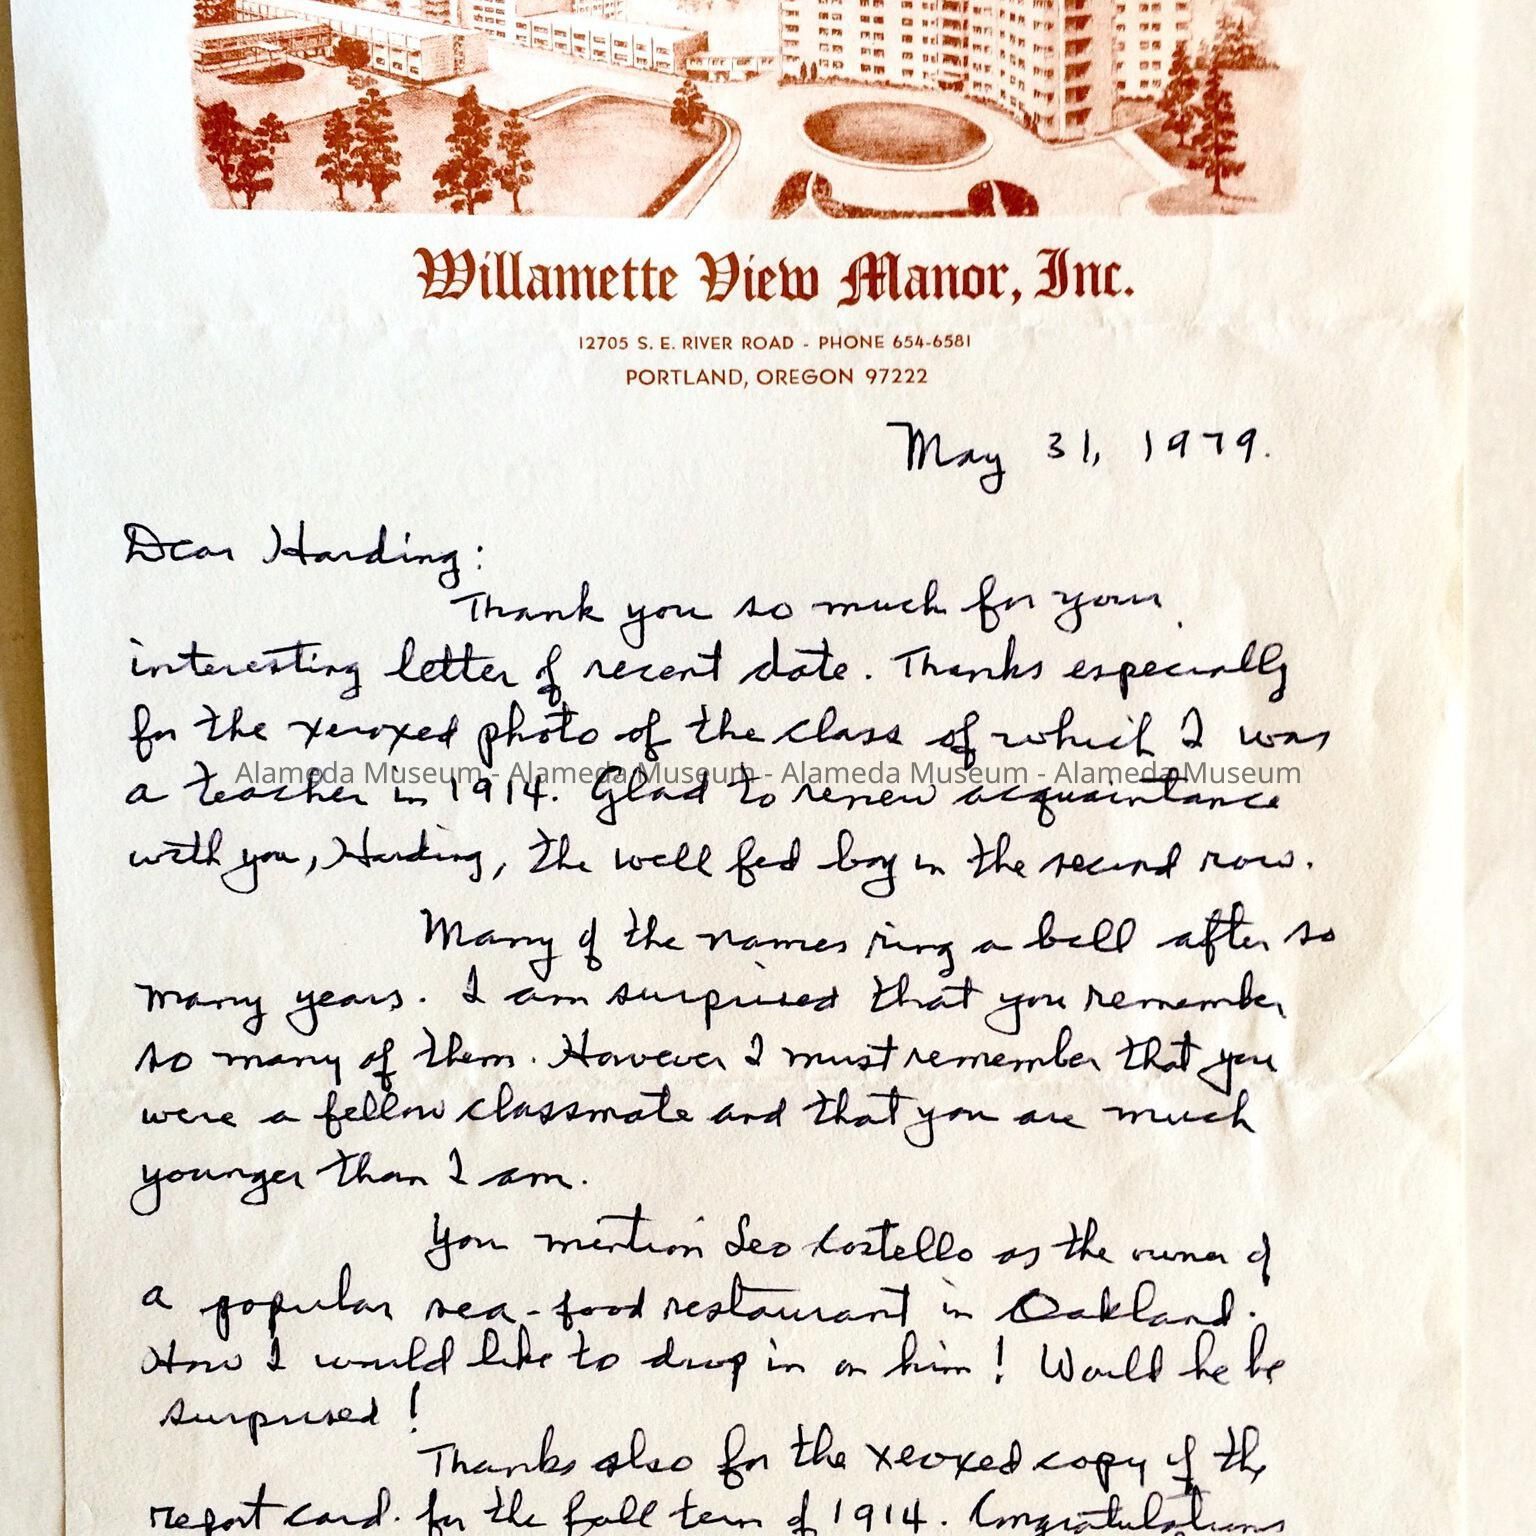 Willamette View Manor, Inc.
12705 S. E. RIVER ROAD - PHONE 654-6581
PORTLAND, OREGON 97222
May 31, 1979.
Dear Harding:
Thank you so much for your
interesting letter of recent date. Thanks especially
for the xeroxed photo of the class of which I was
Alameda Museum - Alameda Museum - Alameda Museum - Alameda Museum
a teacher in 1914. Glad to renew acquaintance
with you, Harding, the well fed boy in the second row.
Many of the names ring a bell after so
many years. I am surprised that you remember
so many of them. However I must remember that you
were a fellow classmate and that you are much
younger than I am.
You mention Leo Costello as the owner of
a popular sea-food restaurant in Oakland.
How I would like to drop in on him! Would he be
surprised!
Thanks also for the xeroxed copy of the
report card. for the fall term of 1914. Congratulations